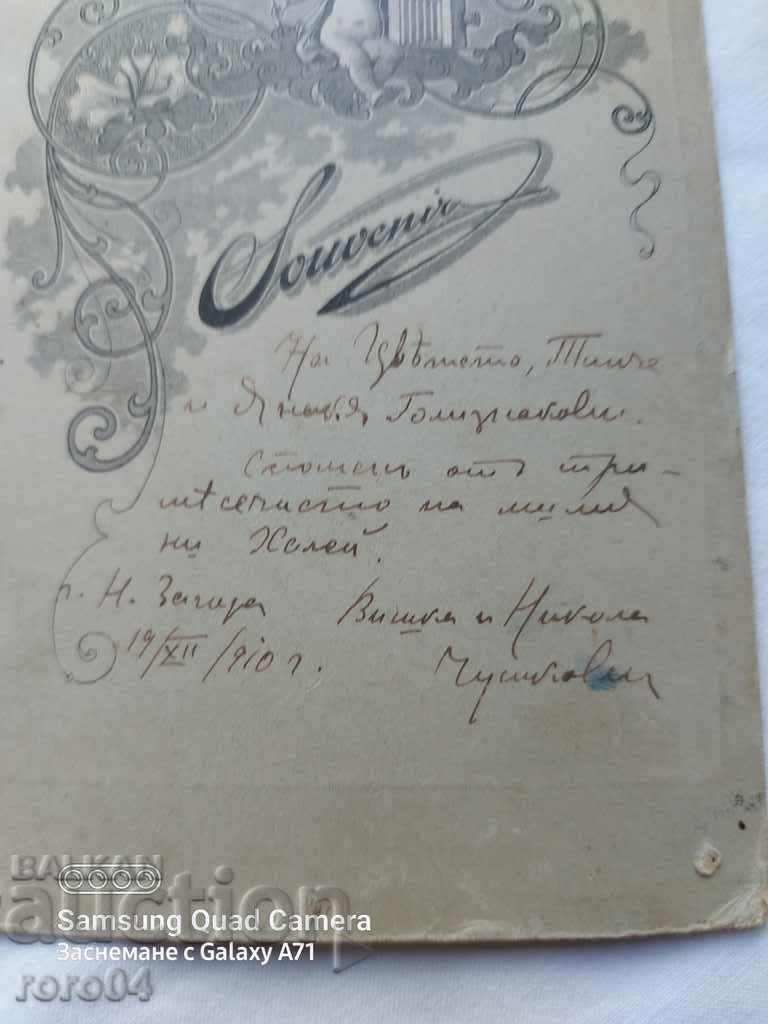 Souvenir
На Цвѣтето, Тинче
и Янакя Голизнакови.
Споменъ отъ три-
мѣсечието на милия
ни Холей.
г. Н. Загора Вишка и Никола
19/XII/910 г. Чушкови
BALKAN
auction
Samsung Quad Camera
Заснемане с Galaxy A71
roro04